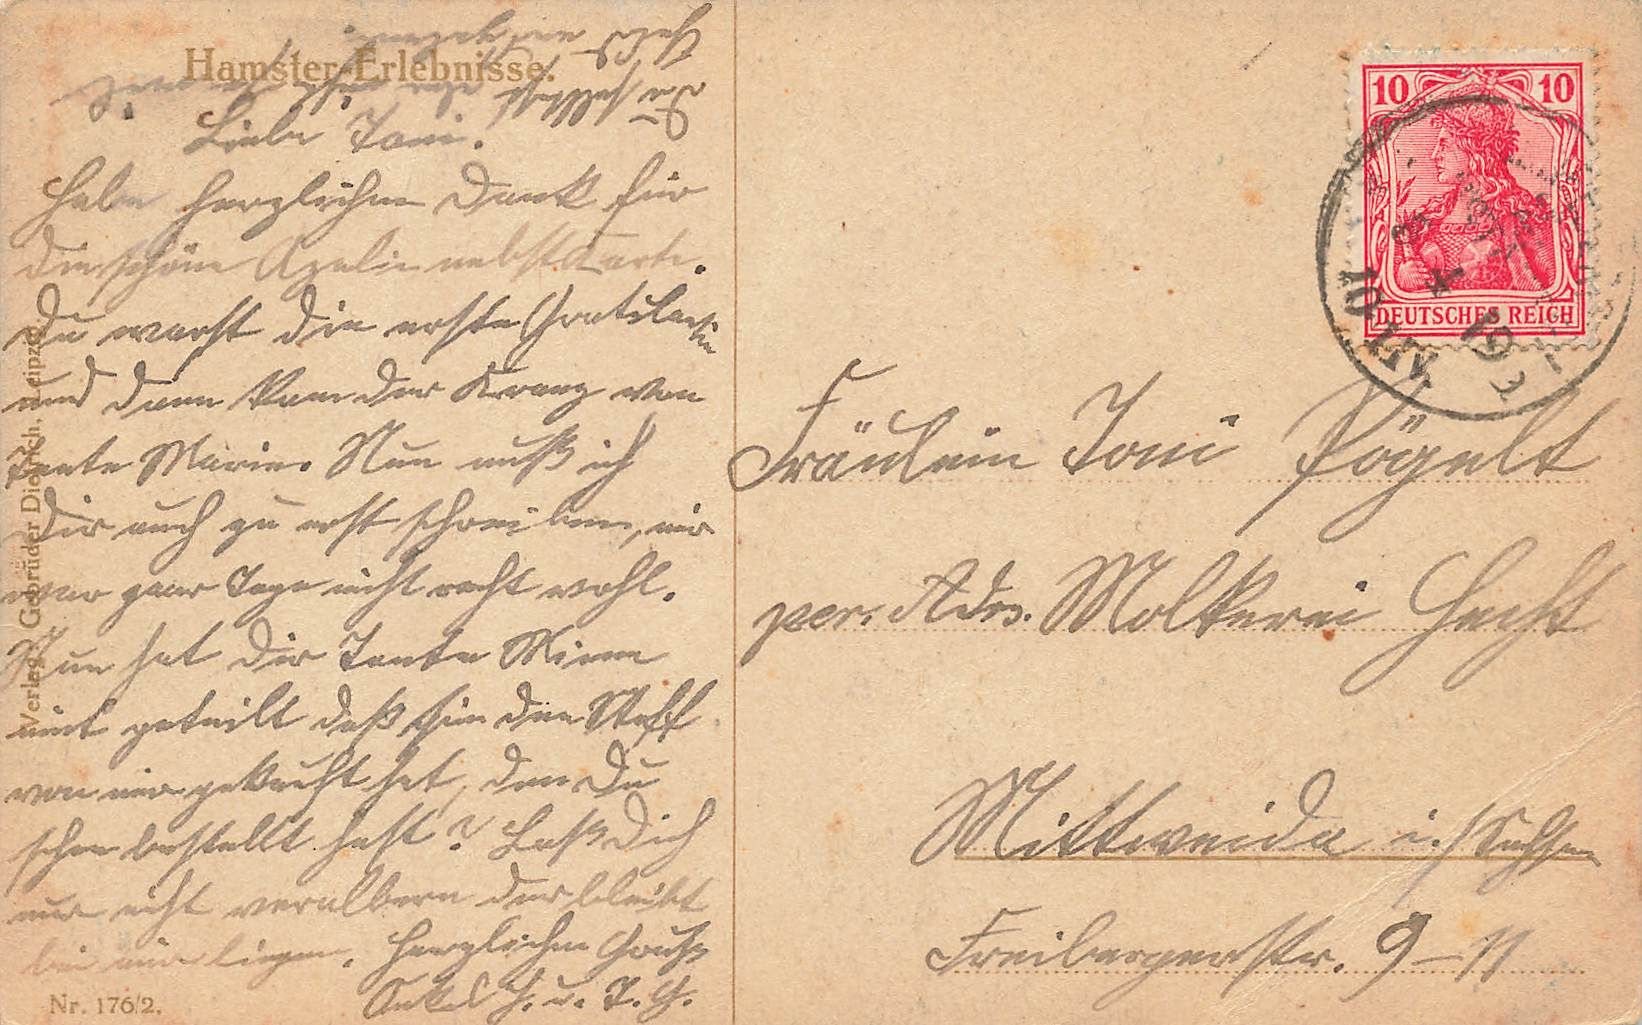 Hamster-Erlebnisse.
Liebe Toni.
Habe herzlichen Dank für
die schöne Azalie nebst Karte.
Du warst die erste Gratulantin
und dann kam der Kranz von
Tante Marie. Nun muß ich
Dir auch zu erst schreiben, mir
war paar Tage nicht recht wohl.
Nun hat Dir Tante Minna
mit geteilt daß sie den Stoff
von mir gekauft hat, den Du
schon bestellt hast? Laß Dich
nur nicht veralbern der bleibt
bei mir liegen. Herzlichen Gruß
Onkel H. u. T. H.
Verlag: Gebrüder Dietrich, Leipzig
Nr. 176/2.
10 10
DEUTSCHES REICH
Fräulein Toni Pögelt
per. Adr. Molkerei Hecht
Mittweida i/ Sachsen
Freibergerstr. 9-11